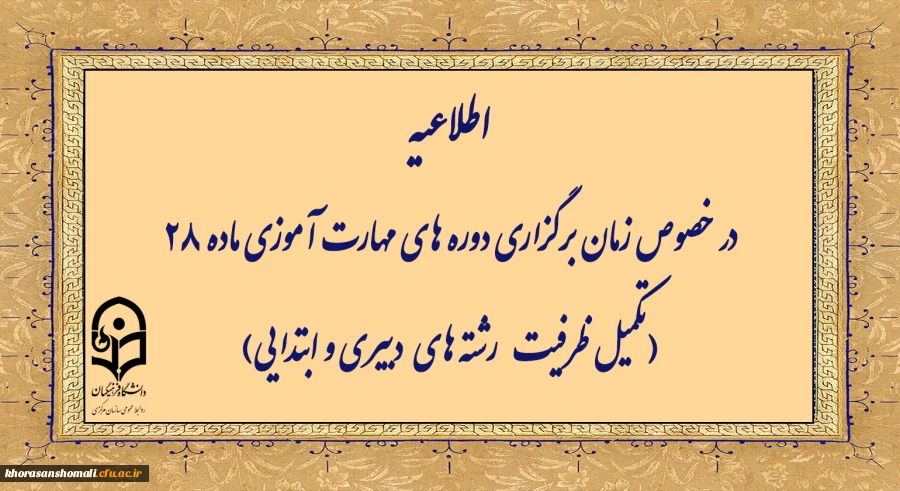 اطلاعیه
در خصوص زمان برگزاری دوره های مهارت آموزی ماده ۲۸
(تکمیل ظرفیت رشته های دبیری و ابتدایی)
دانشگاه فرهنگیان
روابط عمومی سازمان مرکزی
khorasanshomali.cfu.ac.ir